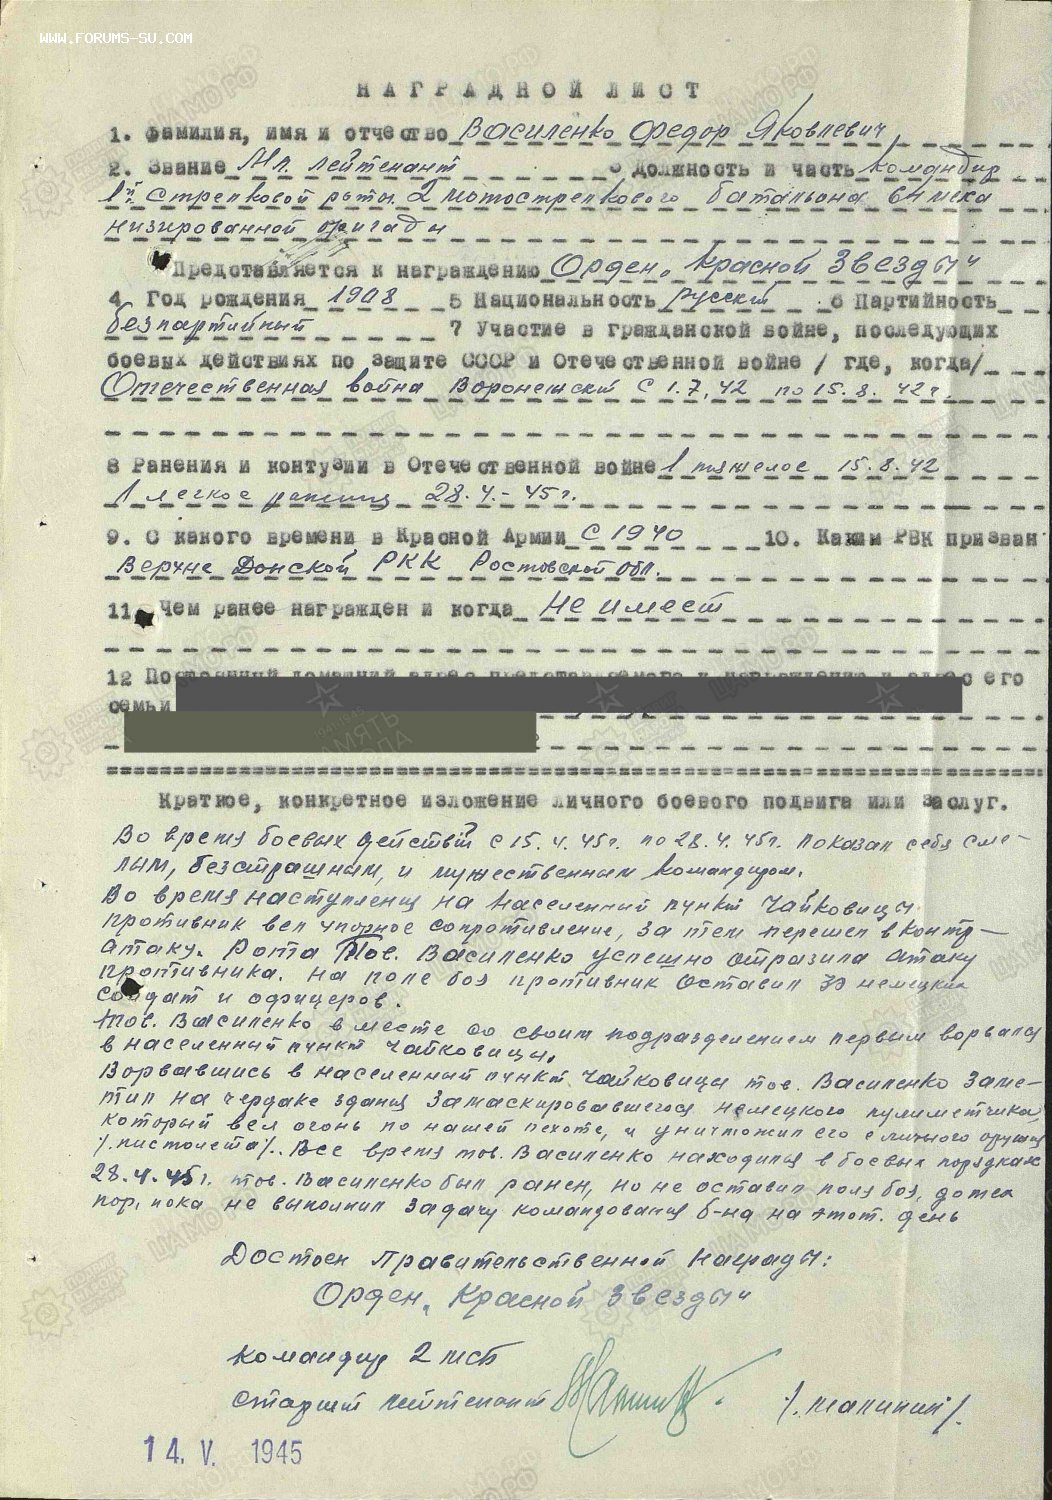 WWW.FORUMS-SU.COM
НАГРАДНОЙ ЛИСТ
1. Фамилия, имя и отчество Василенко Федор Яковлевич
2. Звание Мл. лейтенант 3 Должность и часть Командир
1й стрелковой роты 2 мотострелкового батальона 6й меха
низированной бригады
Представляется к награждению Орден „Красной Звезды"
4 Год рождения 1908 5 Национальность русский 6 Партийность
безпартийный 7 Участие в гражданской войне, последующих
боевых действиях по защите СССР и Отечественной войне / где, когда/
Отечественная война Воронежский с 1.7.42 по 15.8.42г.
8 Ранения и контузии в Отечественной войне 1 тяжелое 15.8.42
1 легкое ранение 28.4.-45г.
9. С какого времени в Красной Армии с 1940 10. Каким РВК призван
Верхне Донской РКК Ростовской обл.
11. Чем ранее награжден и когда Не имеет
12 Постоянный домашний адрес представляемого к награждению и адрес его
семьи
Краткое, конкретное изложение личного боевого подвига или заслуг.
Во время боевых действий с 15.4.45г. по 28.4.45г. показал себя сме-
лым, безстрашным, и мужественным командиром.
Во время наступления на населенный пункт Чайковицы
противник вел упорное сопротивление, за тем перешел в контр-
атаку. Рота Тов. Василенко успешно отразила атаку
противника. На поле боя противник оставил немецких
солдат и офицеров.
Тов. Василенко в месте со своим подразделением первым ворвался
в населенный пункт Чайковицы.
Ворвавшись в населенный пункт Чайковицы тов. Василенко заме-
тил на чердаке здания замаскировавшегося немецкого пулиметчика,
который вел огонь по нашей пехоте, и уничтожил его с личного оружия
/.пистолета/. Все время тов. Василенко находился в боевых порядках
28.4.45г. тов. Василенко был ранен, но не оставил поля боя, до тех
пор, пока не выполнил задачу командования б-на на этот. день
Достоен правительственной награды:
Орден „Красной Звезды"
Командир 2 мсб
старший лейтенант /. Малинин /.
14. V. 1945